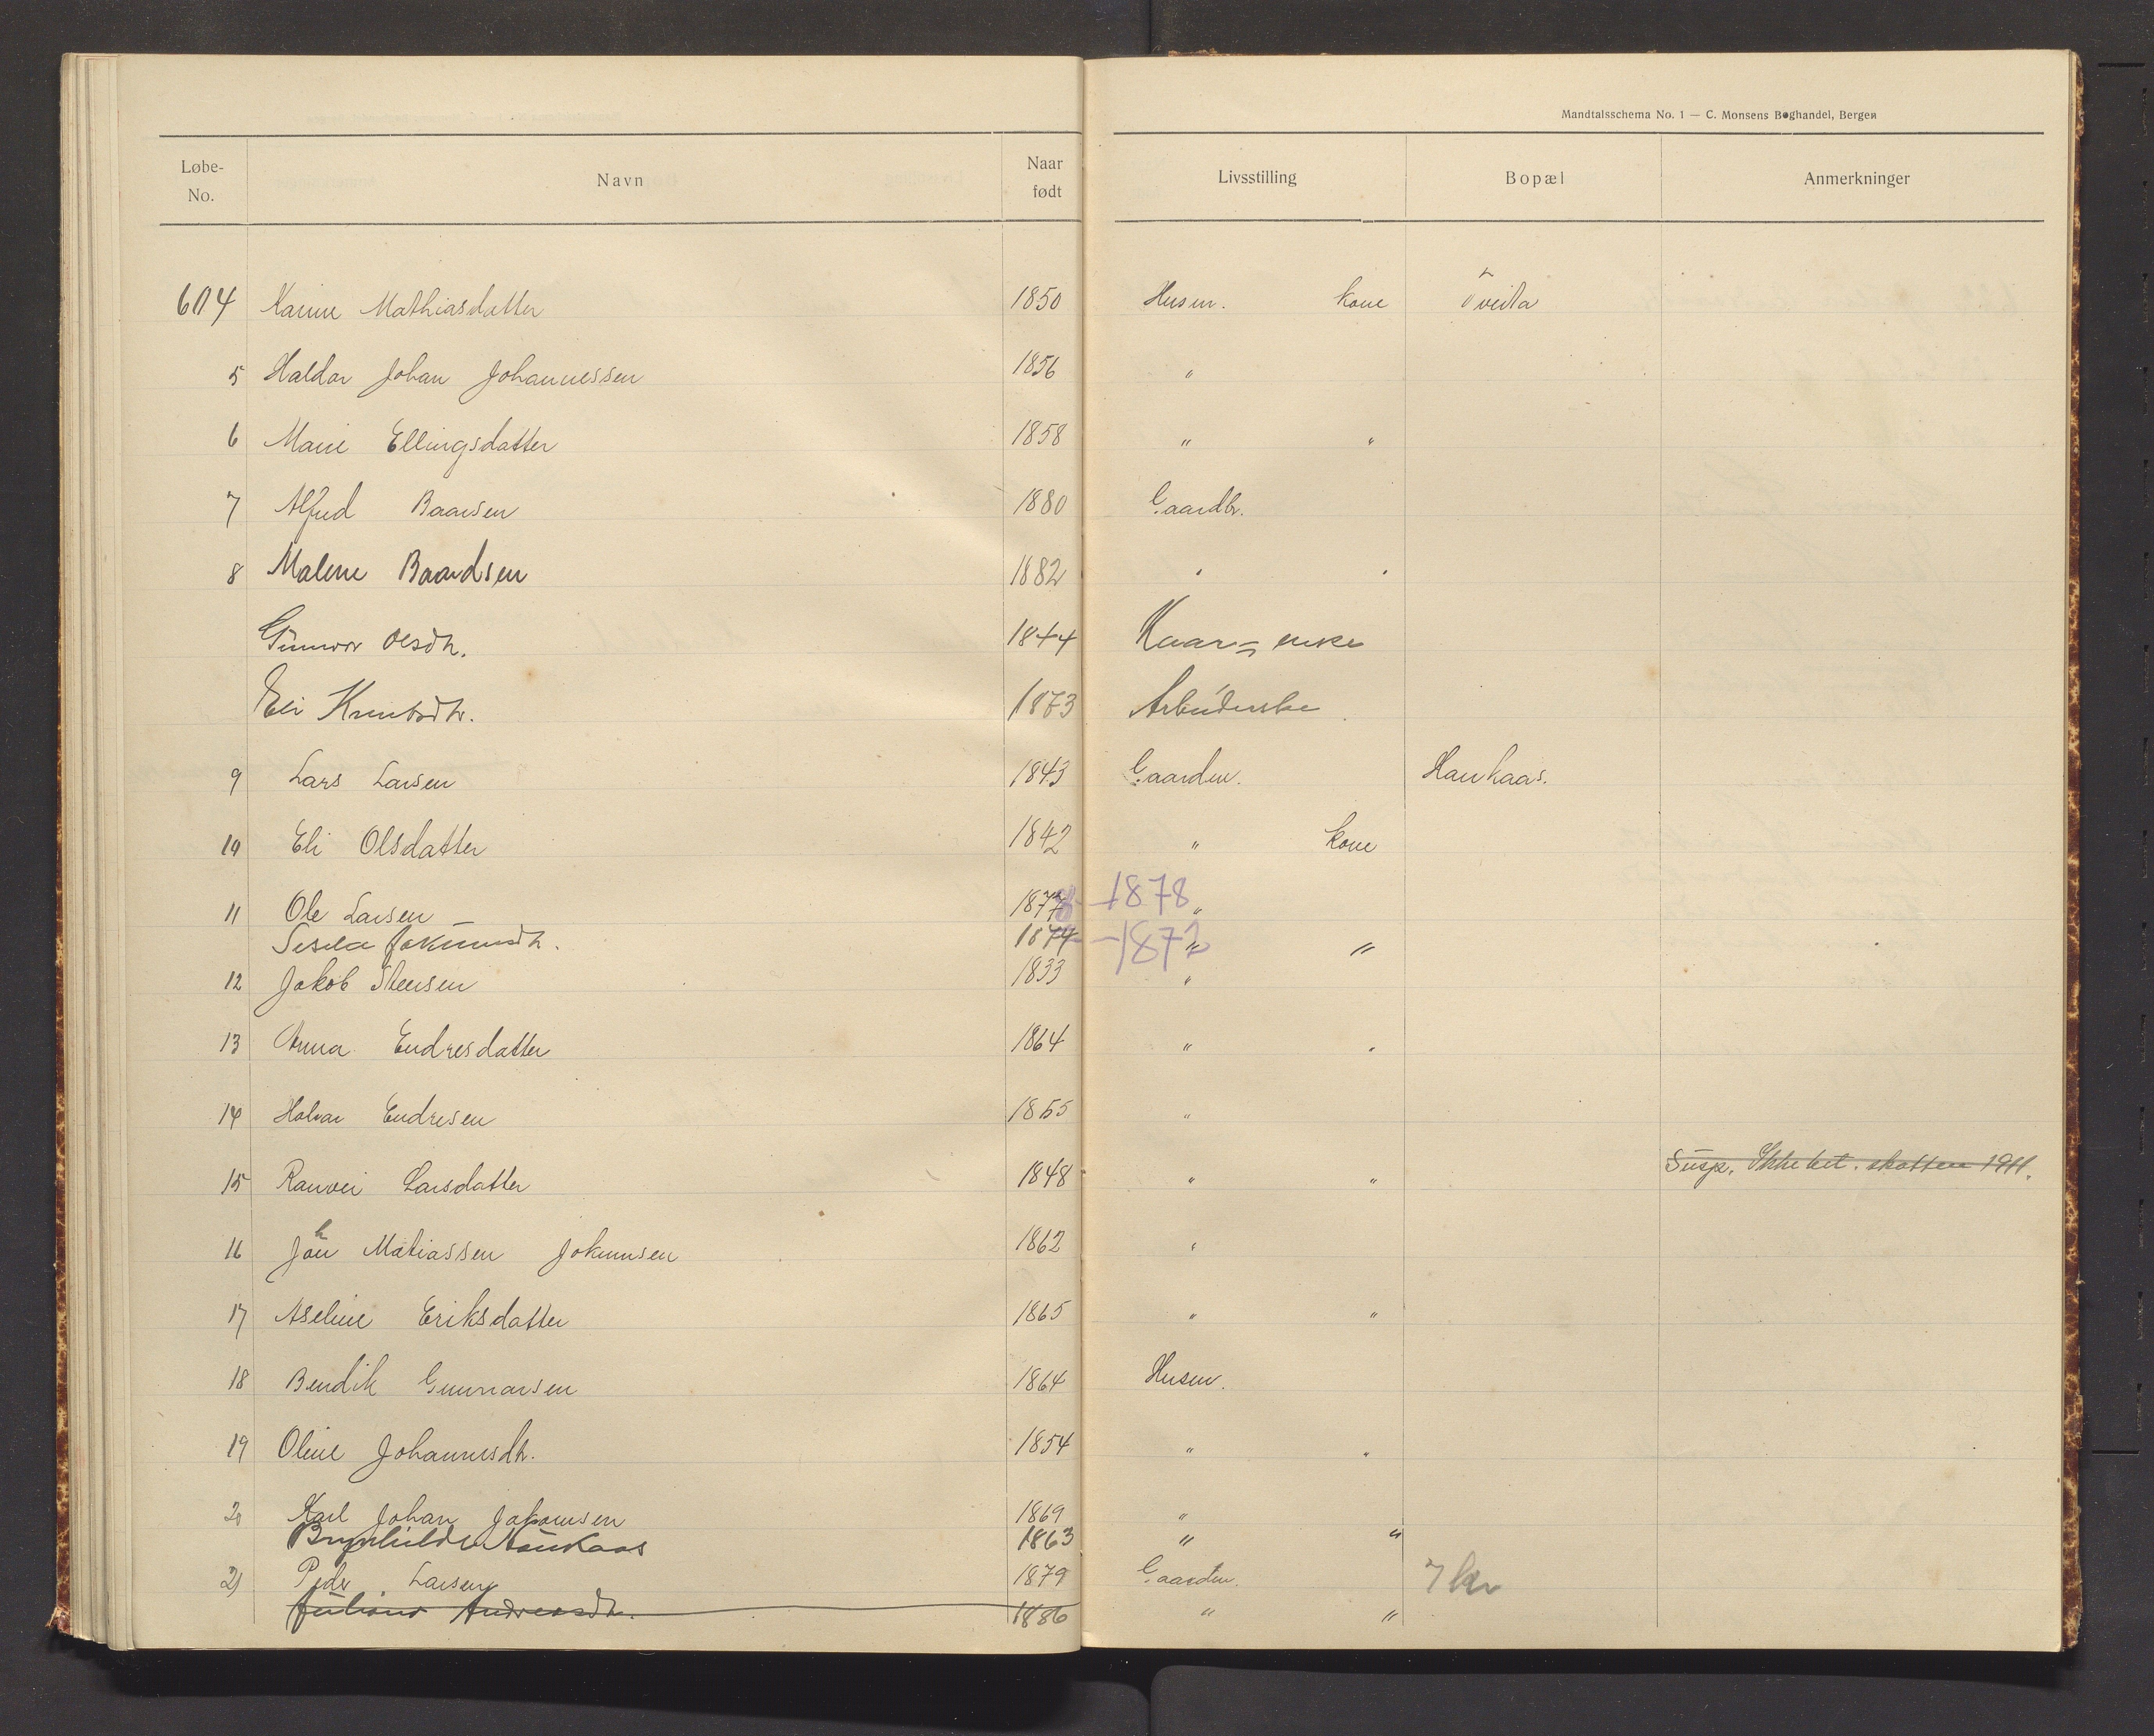 Mandtalsschema No. 1 — C. Monsens Boghandel, Bergen
Løbe-No. Navn Naar født Livsstilling Bopæl Anmerkninger
604 Karine Mathiasdatter 1850 Husm. kone Tveita
5 Haldor Johan Johannessen 1856 "
6 Marie Ellingsdatter 1858 " "
7 Alfred Baarsen 1880 Gaardbr.
8 Malene Baardsen 1882 " "
Gunvor Olsdtr. 1844 Kaar= enke
Eli Knutsdtr. 1873 Arbeiderske
9 Lars Larsen 1843 Gaardm. Haukaas.
10 Eli Olsdatter 1842 " kone
11 Ole Larsen 1878 – 1878 "
Sesela Jokumsdtr. 1874 – 1872 " "
12 Jakob Steensen 1833 "
13 Anna Endresdatter 1864 " "
14 Halvar Endresen 1855 "
15 Ranvei Larsdatter 1848 " " Susp. Ikke bet. skatten 1911.
16 Johan Matiassen Jokumsen 1862 "
17 Aseline Eriksdatter 1865 " "
18 Bendik Gunnarsen 1864 Husm.
19 Oline Johannesdtr. 1854 " "
20 Karl Johan Jakomsen 1869 "
Brynhilde Haukaas 1863 " "
21 Peder Larsen 1879 Gaardm. 7 kr
Juliane Andreasdtr. 1886 " "